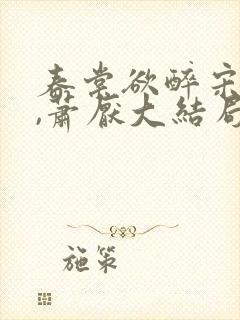 春棠欲醉宋
,萧厌大结局
施策